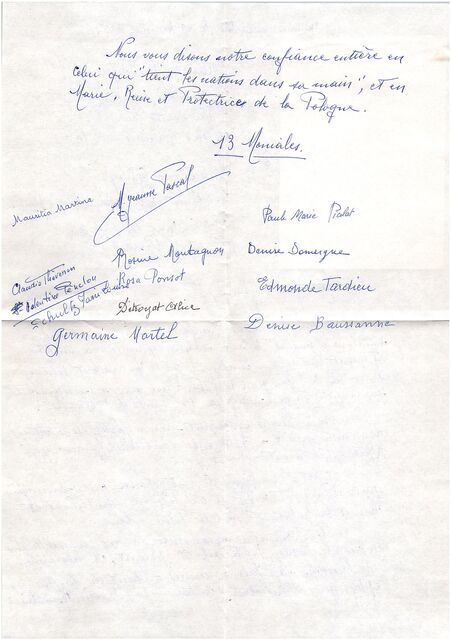 Nous vous disons notre confiance entière en
Celui qui "tient les nations dans sa main", et en
Marie, Reine et Protectrice de la Pologne.
13 Moniales.
Pascal
Maurilia Martina
Paule Marie Pialat
Rosine Montagnon
Denise Domergne
Claudia Thévenon
Rosa Ponsot
Edmonde Tardieu
Valentine
Schultz
Détroyat
Germaine Martel
Denise Baussanne